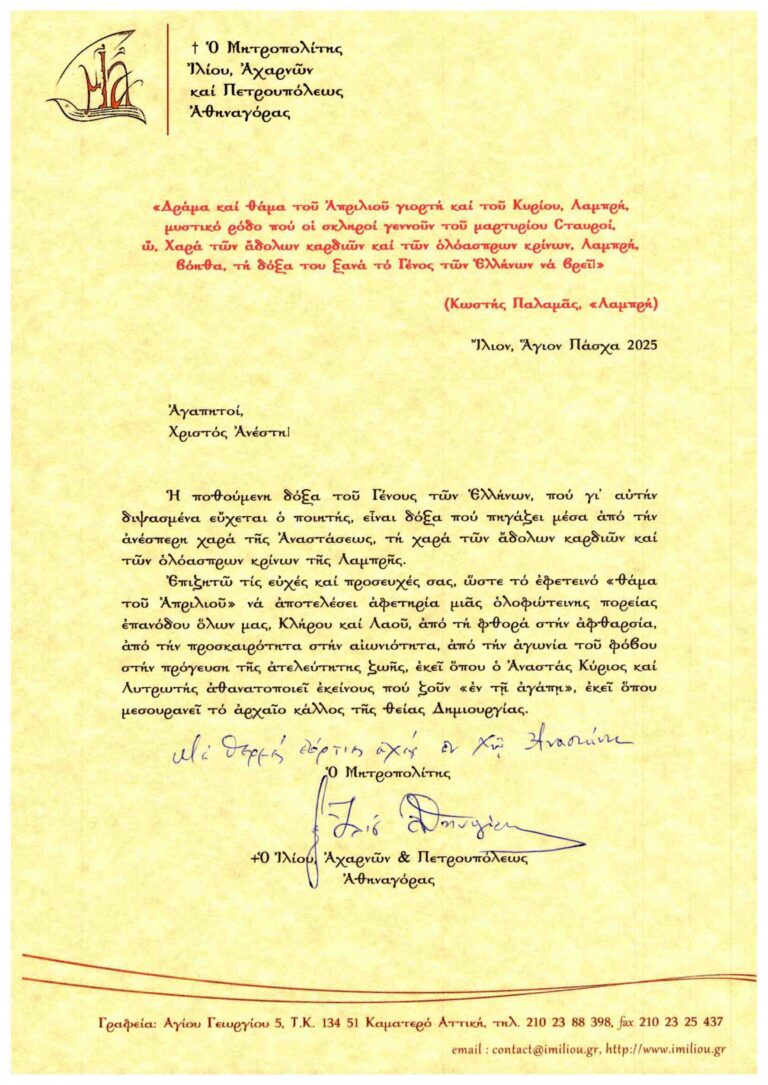 † Ὁ Μητροπολίτης
Ἰλίου, Ἀχαρνῶν
καί Πετρουπόλεως
Ἀθηναγόρας
«Δράμα καί θάμα τοῦ Ἀπριλιοῦ γιορτή καί τοῦ Κυρίου, Λαμπρή,
μυστικό ρόδο πού οἱ σκληροί γεννοῦν τοῦ μαρτυρίου Σταυροί,
ὦ, Χαρά τῶν ἄδολων καρδιῶν καί τῶν ὁλόασπρων κρίνων, Λαμπρή,
βόηθα, τή δόξα του ξανά τό Γένος τῶν Ἑλλήνων νά βρεῖ!»
(Κωστής Παλαμᾶς, «Λαμπρή)
Ἴλιον, Ἅγιον Πάσχα 2025
Ἀγαπητοί,
Χριστός Ἀνέστη!
Ἡ ποθούμενη δόξα τοῦ Γένους τῶν Ἑλλήνων, πού γι' αὐτήν
διψασμένα εὔχεται ὁ ποιητής, εἶναι δόξα πού πηγάζει μέσα ἀπό τήν
ἀνέσπερη χαρά τῆς Ἀναστάσεως, τή χαρά τῶν ἄδολων καρδιῶν καί
τῶν ὁλόασπρων κρίνων τῆς Λαμπρῆς.
Ἐπιζητῶ τίς εὐχές καί προσευχές σας, ὥστε τό ἐφετεινό «θάμα
τοῦ Ἀπριλιοῦ» νά ἀποτελέσει ἀφετηρία μιᾶς ὁλοφώτεινης πορείας
ἐπανόδου ὅλων μας, Κλήρου καί Λαοῦ, ἀπό τή φθορά στήν ἀφθαρσία,
ἀπό τήν προσκαιρότητα στήν αἰωνιότητα, ἀπό τήν ἀγωνία τοῦ φόβου
στήν πρόγευση τῆς ἀτελεύτητης ζωῆς, ἐκεῖ ὅπου ὁ Ἀναστάς Κύριος καί
Λυτρωτής ἀθανατοποιεῖ ἐκείνους πού ζοῦν «ἐν τῇ ἀγάπῃ», ἐκεῖ ὅπου
μεσουρανεῖ τό ἀρχαῖο κάλλος τῆς θείας Δημιουργίας.
Μέ θερμές εὐχές ἐν Χῷ Ἀναστάντι
Ὁ Μητροπολίτης
+Ὁ Ἰλίου, Ἀχαρνῶν & Πετρουπόλεως
Ἀθηναγόρας
Γραφεία: Αγίου Γεωργίου 5, Τ.Κ. 134 51 Καματερό Αττική, τηλ. 210 23 88 398, fax 210 23 25 437
email : contact@imiliou.gr, http://www.imiliou.gr